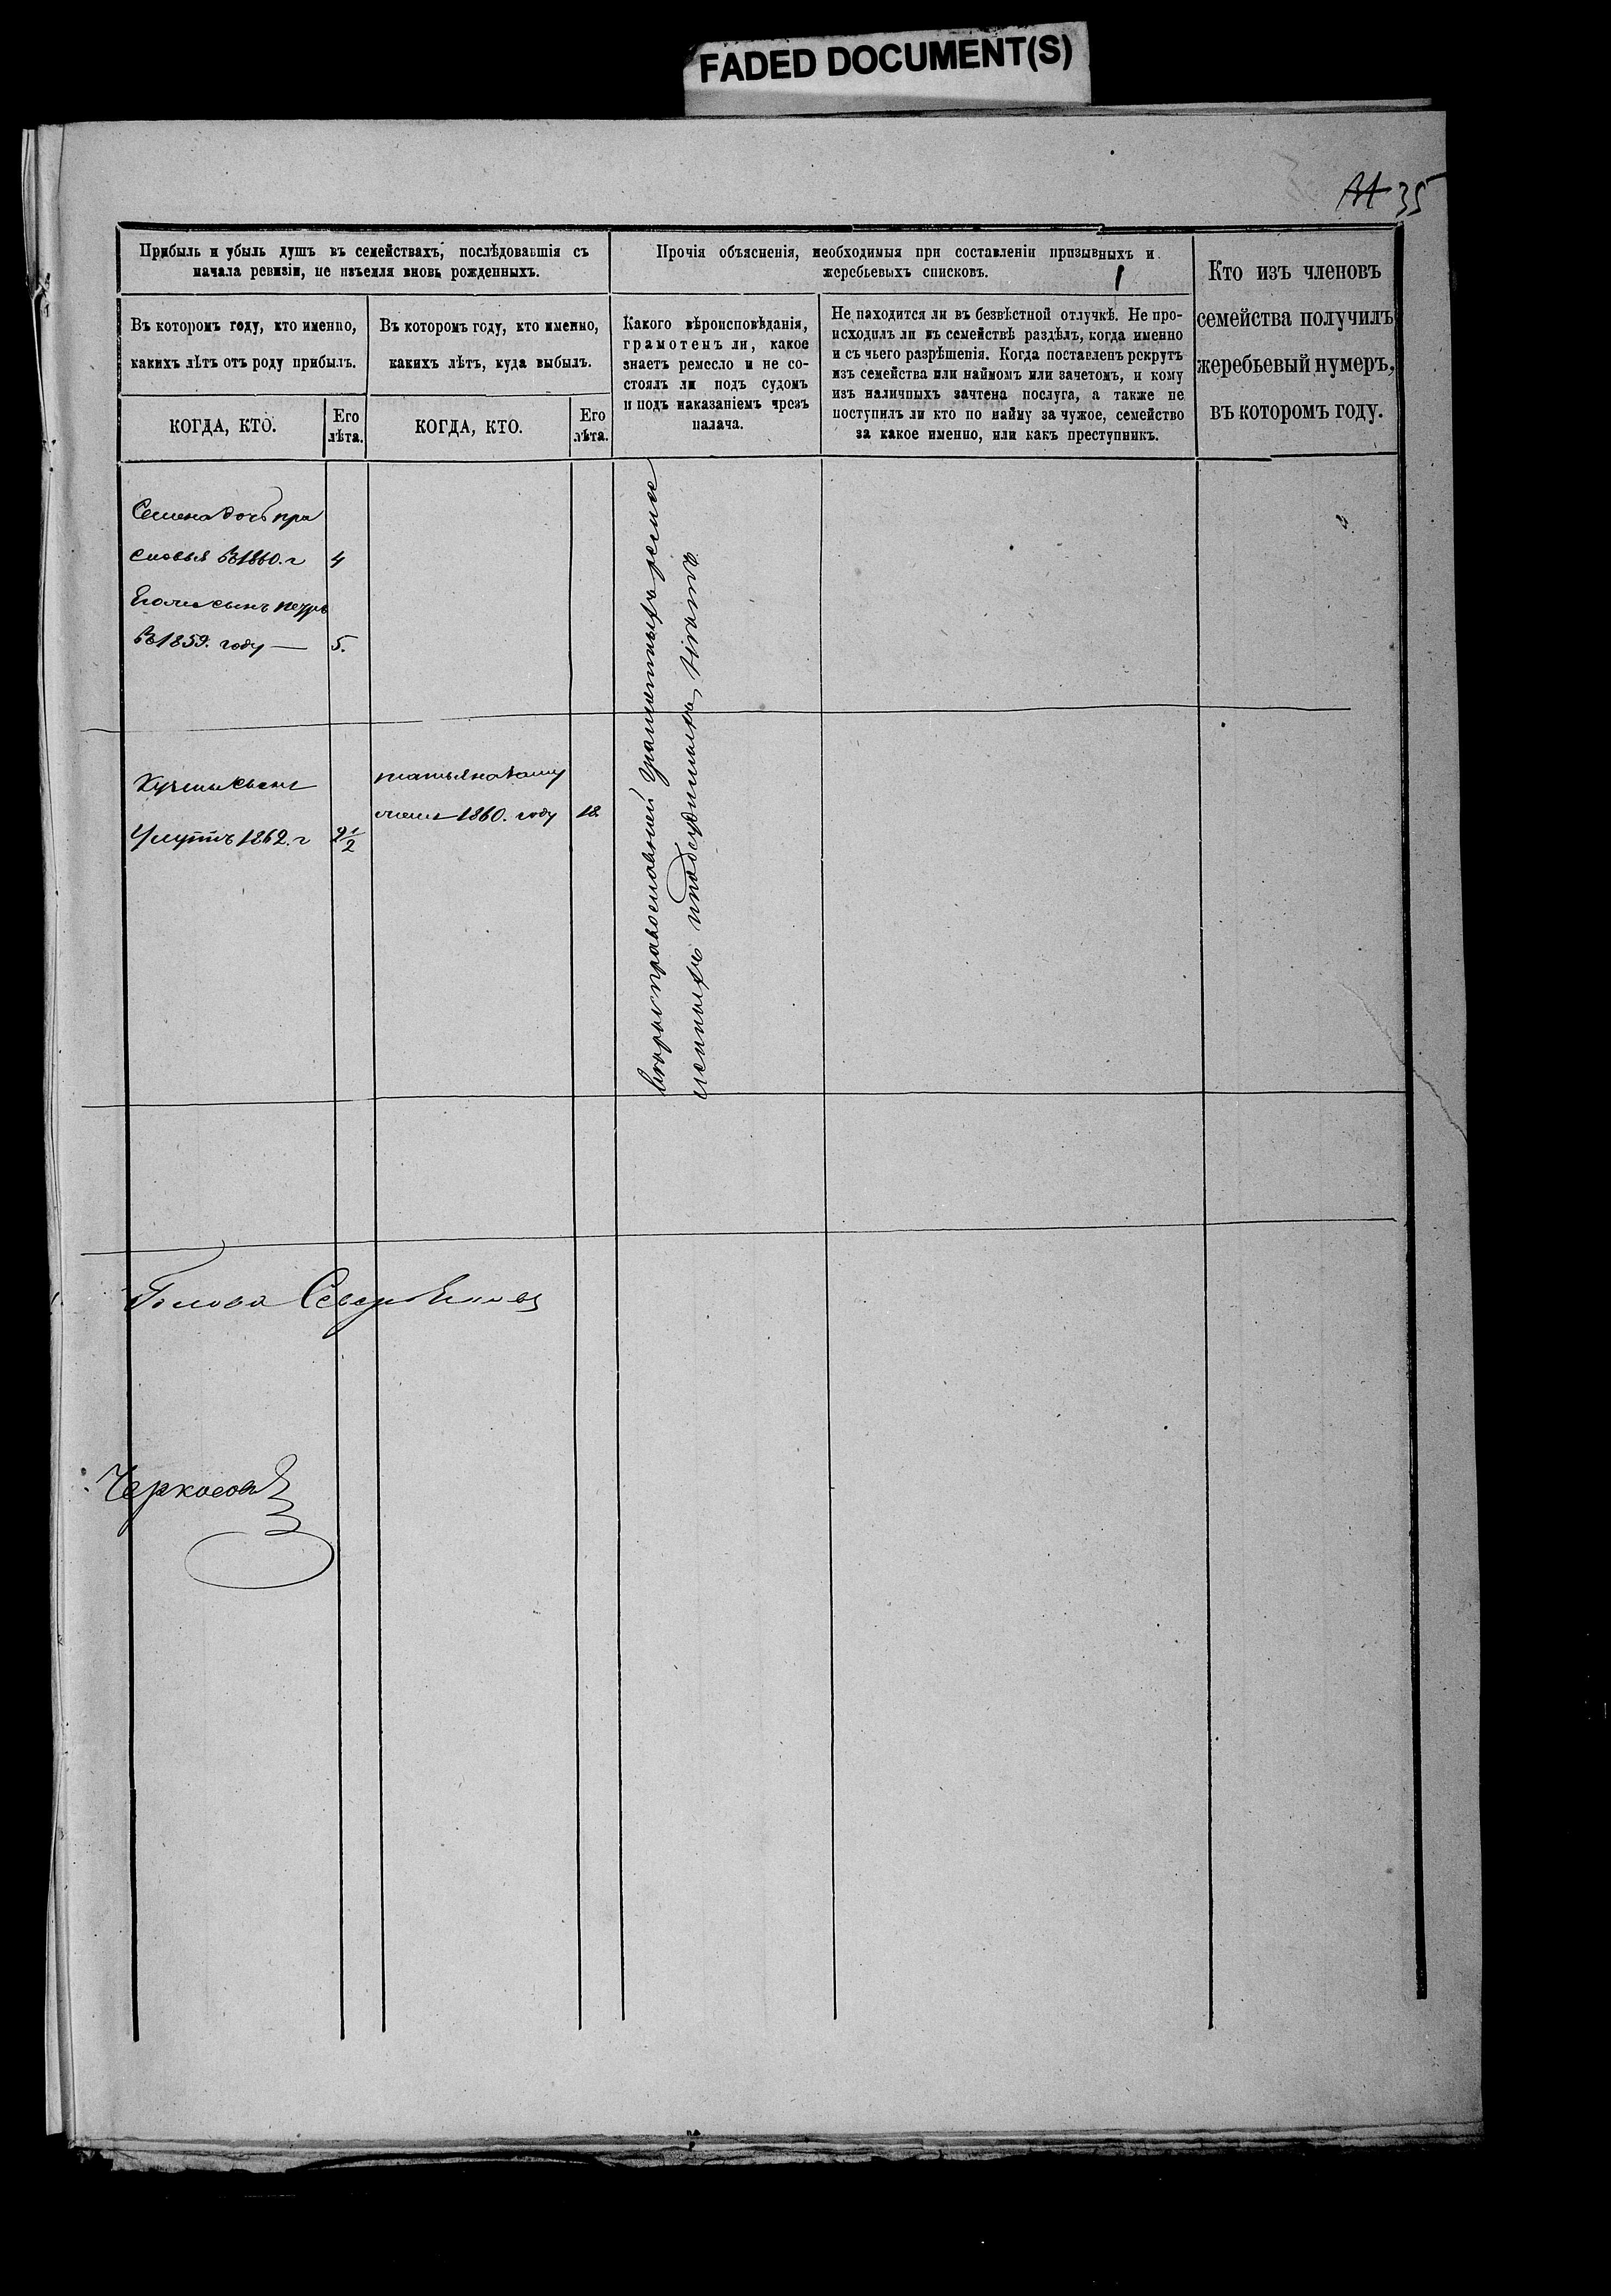 FADED DOCUMENT(S)
35
Прибыль и убыль душъ въ семействахъ, послѣдовавшія съ
начала ревизіи, не изъемля вновь рожденныхъ.
Прочія объясненія, необходимыя при составленіи призывныхъ и
жеребьевыхъ списковъ.
Кто изъ членовъ
семейства получилъ
жеребьевый нумеръ,
въ которомъ году.
Въ которомъ году, кто именно,
какихъ лѣтъ отъ роду прибылъ.
Въ которомъ году, кто именно,
какихъ лѣтъ, куда выбылъ.
Какого вѣроисповѣданія,
грамотенъ ли, какое
знаетъ ремесло и не со-
стоялъ ли подъ судомъ
и подъ наказаніемъ чрезъ
палача.
Не находится ли въ безвѣстной отлучкѣ. Не про-
исходилъ ли въ семействѣ раздѣлъ, когда именно
и съ чьего разрѣшенія. Когда поставленъ рекрутъ
изъ семейства или наймомъ или зачетомъ, и кому
изъ наличныхъ зачтена послуга, а также не
поступилъ ли кто по найму за чужое, семейство
за какое именно, или какъ преступникъ.
КОГДА, КТО.
Его
лѣта.
КОГДА, КТО.
Его
лѣта.
Семена дочь пра
сковья въ 1860. г 4
сынъ петръ
въ 1859. году — 5.
Кузмы сынъ
1862. г 2 1/2
татьяна заму
1860. году 18
православной грамотныхъ реме
сленныхъ и подсудимыхъ
Голова
Черкасовъ